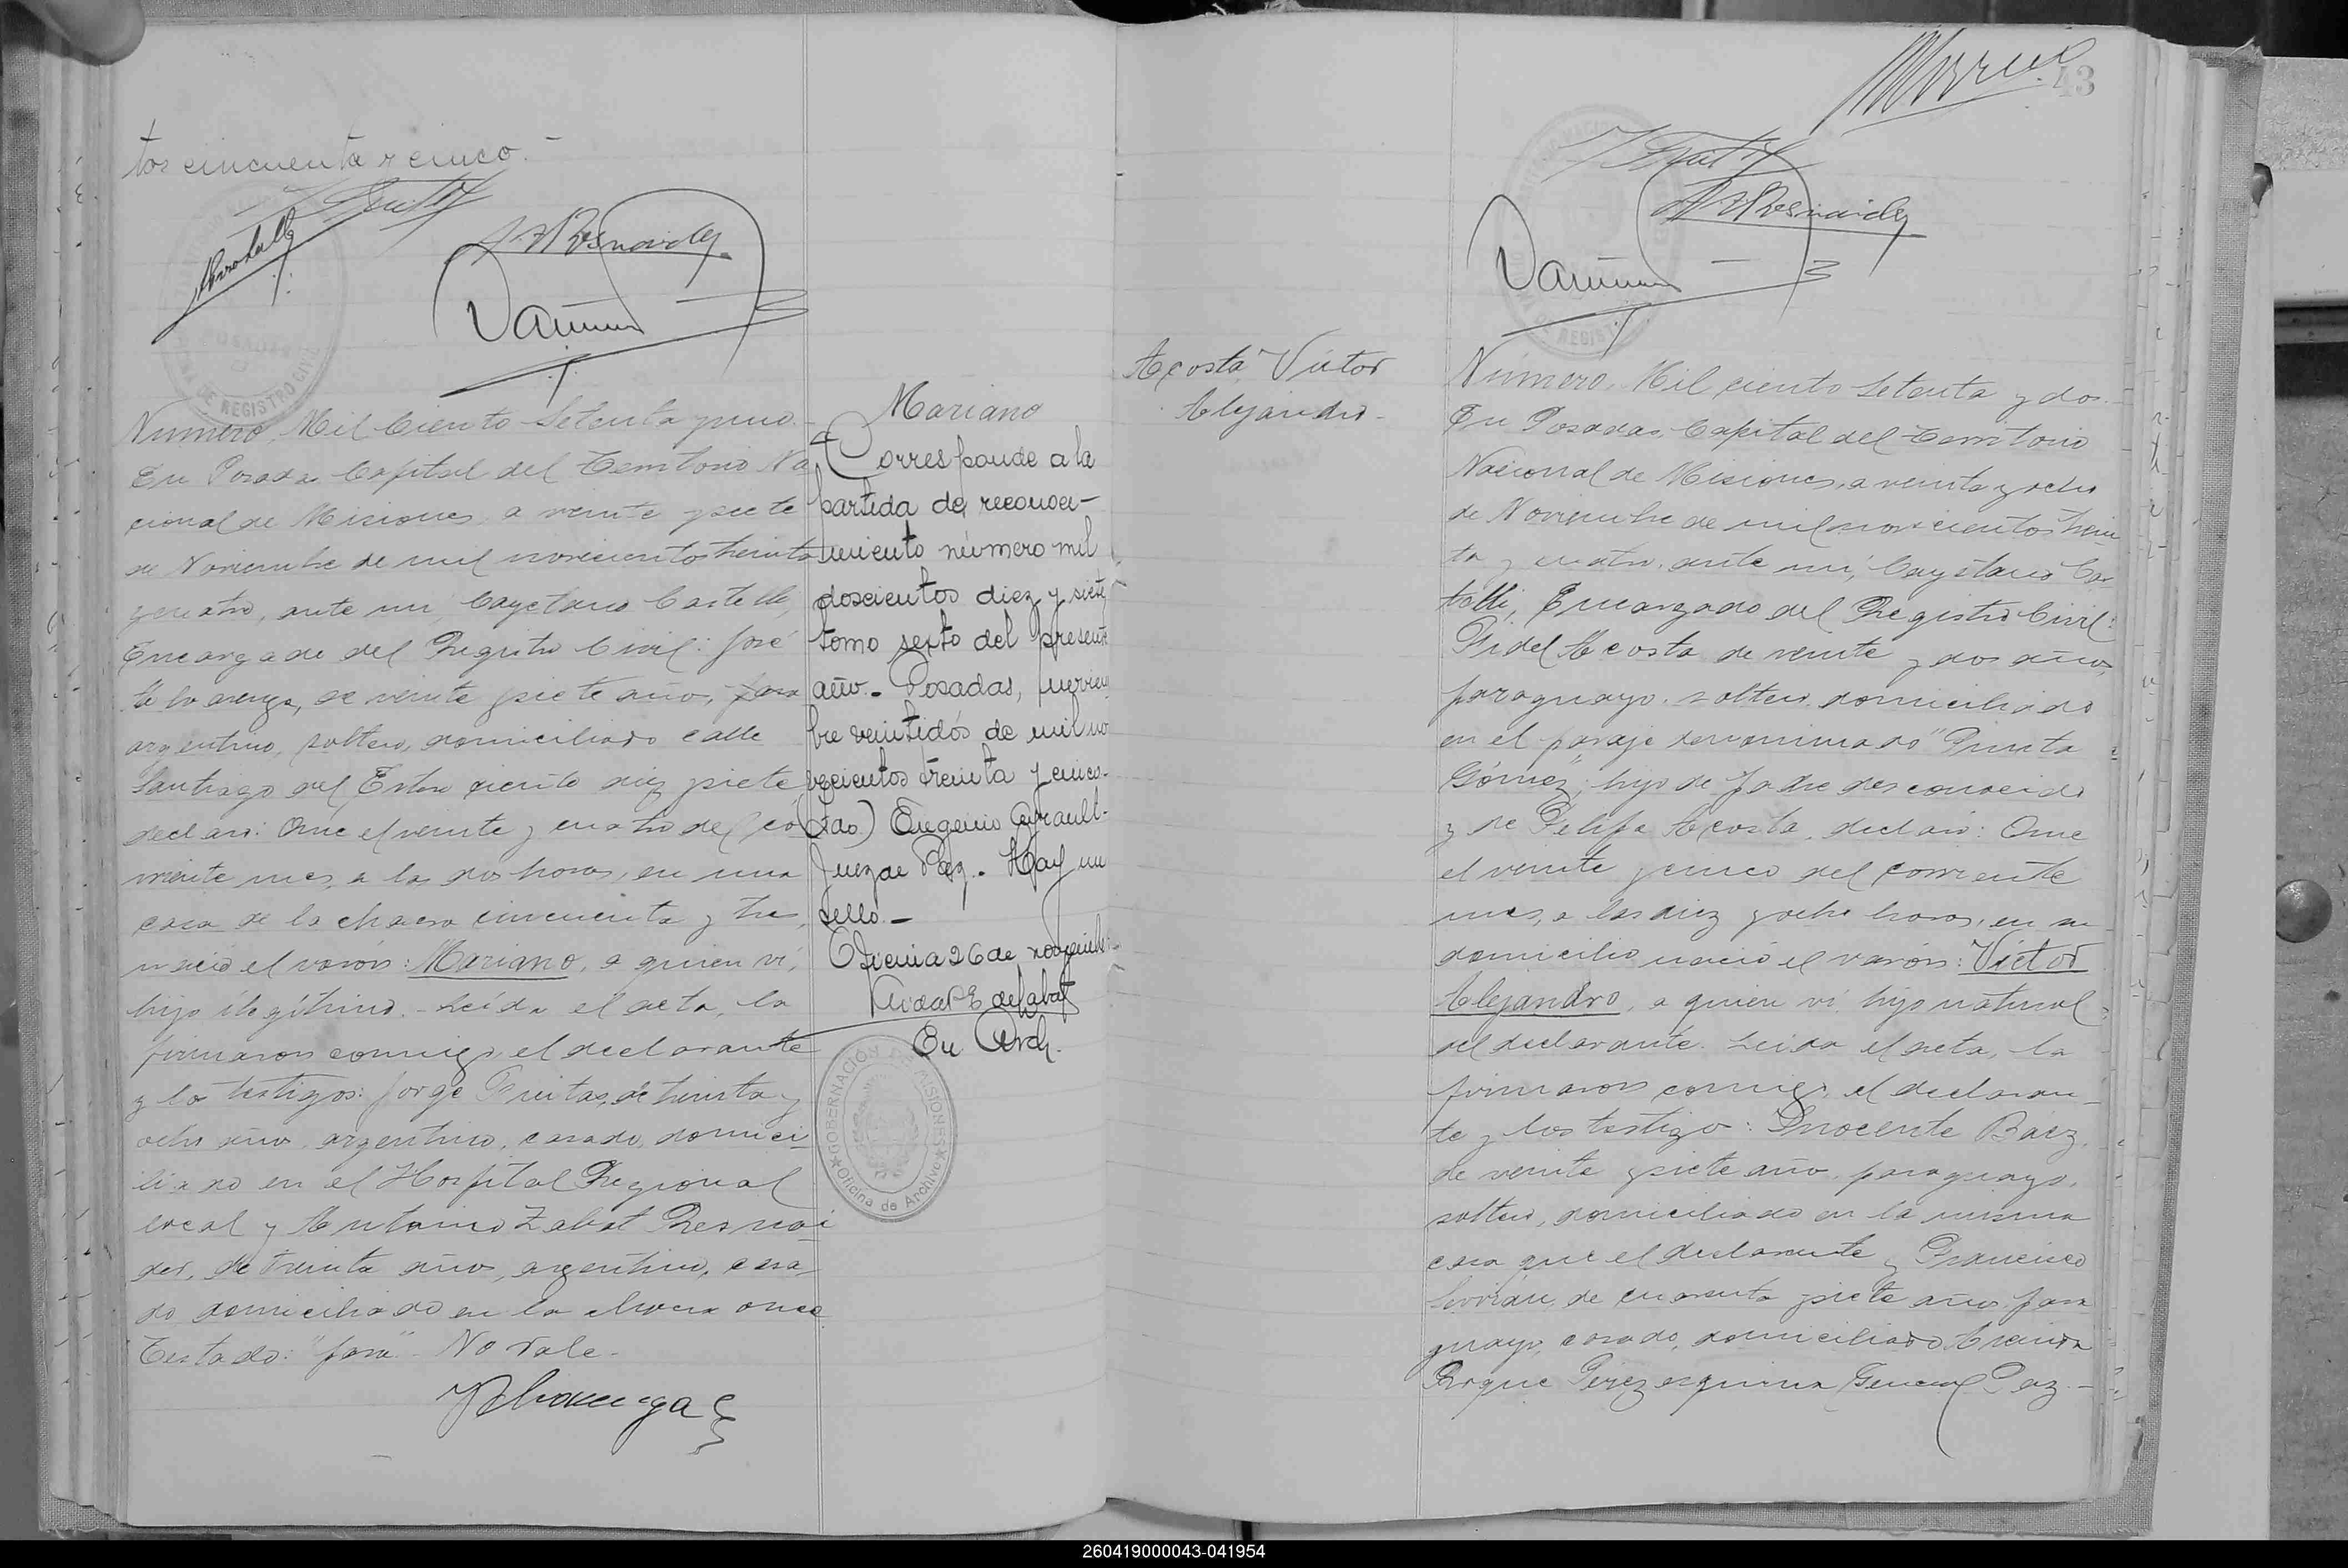 tos cincuenta y cinco.-
Número, Mil Ciento Setenta y uno.-
En Posadas Capital del Territorio Na
cional de Misiones, a veinte y siete
de Noviembre de mil novecientos treinta
y cuatro, ante mi, Cayetano Castelli,
Encargado del Registro Civil: José
de veinte y siete año, para
argentino, soltero, domiciliado calle
Santiago del Estero ciento diez y siete,
declaró: Que el veinte y cuatro del co
rriente mes, a las dos horas, en una
casa de la chacra cincuenta y tres,
nació el varón: Mariano, a quien vi,
hijo ilegítimo. - Leída el acta, la
firmaron conmigo, el declarante
y los testigos: Jorge Freitas, de treinta y
ocho años, argentino, casado, domici
liado en el Hospital Regional
local y Antonino Zabat Resnai
der, de treinta años, argentino, casa
do domiciliado en la chacra once
Testado: "para" - No vale.-
Mariano
Corresponde a la
partida de reconoci-
miento número mil
doscientos diez y siete
tomo sexto del presente
año.- Posadas, noviem
bre veintidós de mil no
vecientos treinta y cinco.-
(Fdo.) Eugenio
Juez de Paz. - Hay un
sello.-
Oficina 26 de noviembre
Enc. Arch.
GOBERNACIÓN DE MISIONES
Oficina de Archivo
43
Acosta, Víctor
Alejandro.-
Número, Mil ciento setenta y dos.-
En Posadas, Capital del Territorio
Nacional de Misiones, a veinte y ocho
de Noviembre de mil novecientos trein
ta y cuatro, ante mi, Cayetano Cas
telli, Encargado del Registro Civil:
Fidel Acosta de veinte y dos años,
paraguayo, soltero, domiciliado
en el paraje denominado "Punta
Gómez", hijo de padre desconocido
y de Felipa Acosta, declaró: Que
el veinte y cinco del corriente
mes, a las diez y ocho horas, en su
domicilio nació el varón: Víctor
Alejandro, a quien vi, hijo natural
del declarante. Leída el acta, la
firmaron conmigo el declaran-
te y los testigo: Inocente Báez,
de veinte y siete año, paraguayo,
soltero, domiciliado en la misma
casa que el declarante y Francisco
de cuarenta y siete años, para
guayo, casado, domiciliado Avenida
Roque Pérez esquina General Paz.-